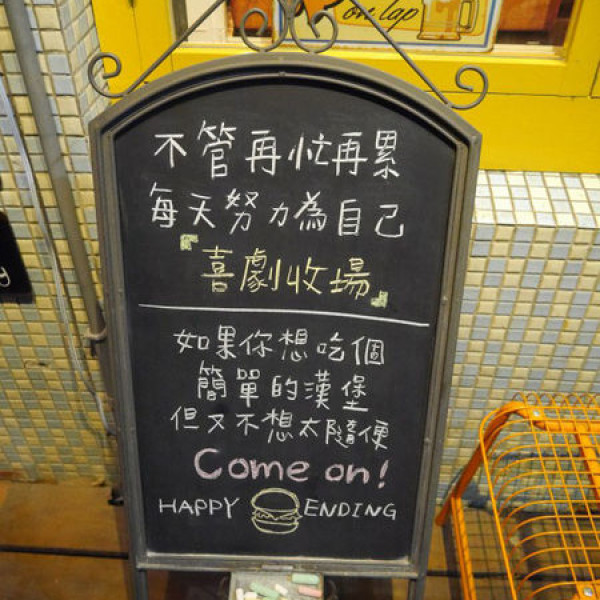 on lap
不管再忙再累
每天努力為自己
『喜劇收場』
如果你想吃個
簡單的漢堡
但又不想太隨便
Come on!
HAPPY ENDING
y